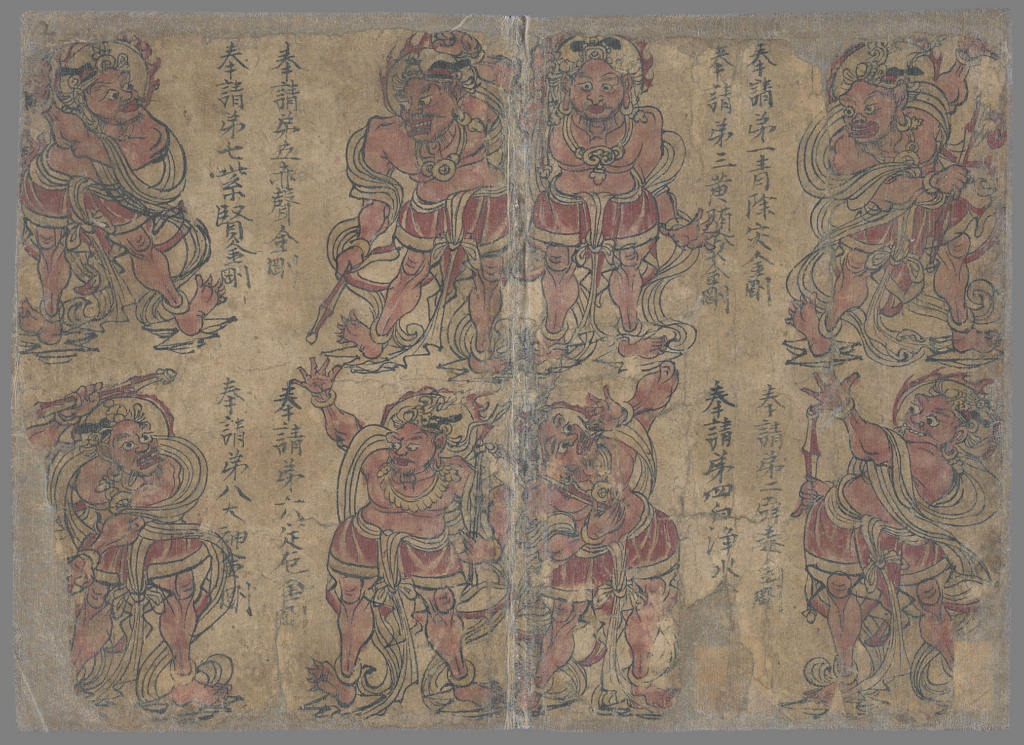 奉請第一青除灾金剛
奉請第二辟毒金剛
奉請第三黃随求金剛
奉請第四白淨水
奉請第五赤聲金剛
奉請第六淀厄金剛
奉請第七紫賢金剛
奉請第八大神金剛
2